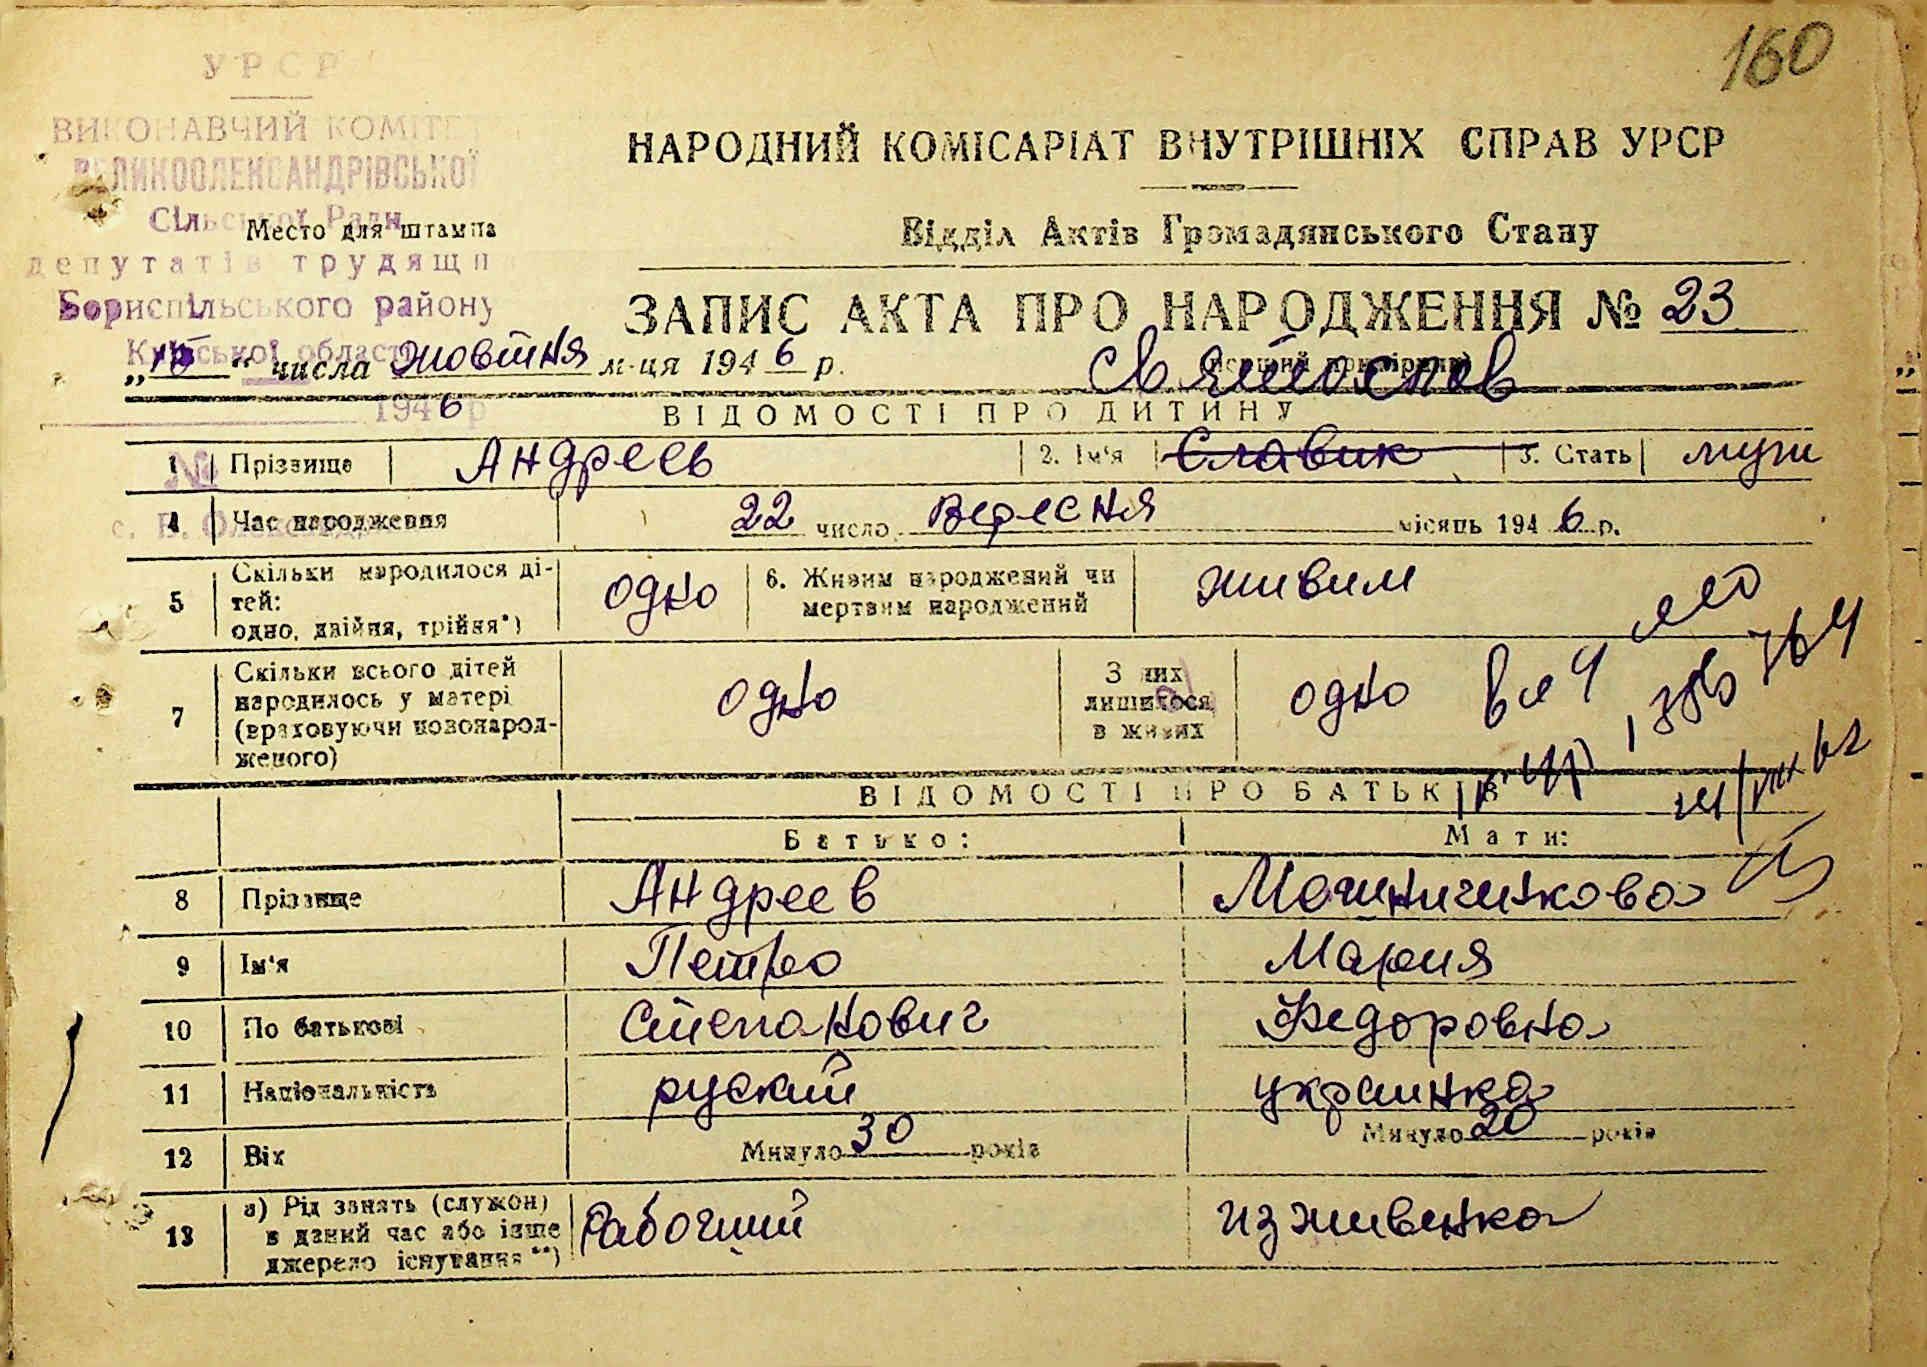 160
УРСР
ВИКОНАВЧИЙ КОМІТЕТ
ВЕЛИКООЛЕКСАНДРІВСЬКОЇ
Сільської Ради
депутатів трудящи
Бориспільського району
Київської області
194 6 р
№
Место для штампа
НАРОДНИЙ КОМІСАРІАТ ВНУТРІШНІХ СПРАВ УРСР
Відділ Актів Громадянського Стану
ЗАПИС АКТА ПРО НАРОДЖЕННЯ № 23
(перший примірник)
„ “ числа жовтня м-ця 194 6 р.
Святослав
ВІДОМОСТІ ПРО ДИТИНУ
1 Прізвище Андреев 2. Ім'я Славик 3. Стать муж
4 Час народження 22 число Вересня місяць 194 6 р.
5 Скільки народилося ді-
тей:
одно, двійня, трійня*) одно 6. Живим народжений чи
мертвим народжений живим
7 Скільки всього дітей
народилось у матері
(враховуючи новонарод-
женого) одно З них
лишилося
в живих одно
ВІДОМОСТІ ПРО БАТЬКІВ
Батько: Мати:
8 Прізвище Андреев
9 Ім'я Петро Мария
10 По батькові Степанович Федоровна
11 Національність руский украинка
12 Вік Минуло 30 років Минуло 20 років
13 а) Рід занять (служби)
в даний час або інше
джерело існування**) Рабочий изживенка